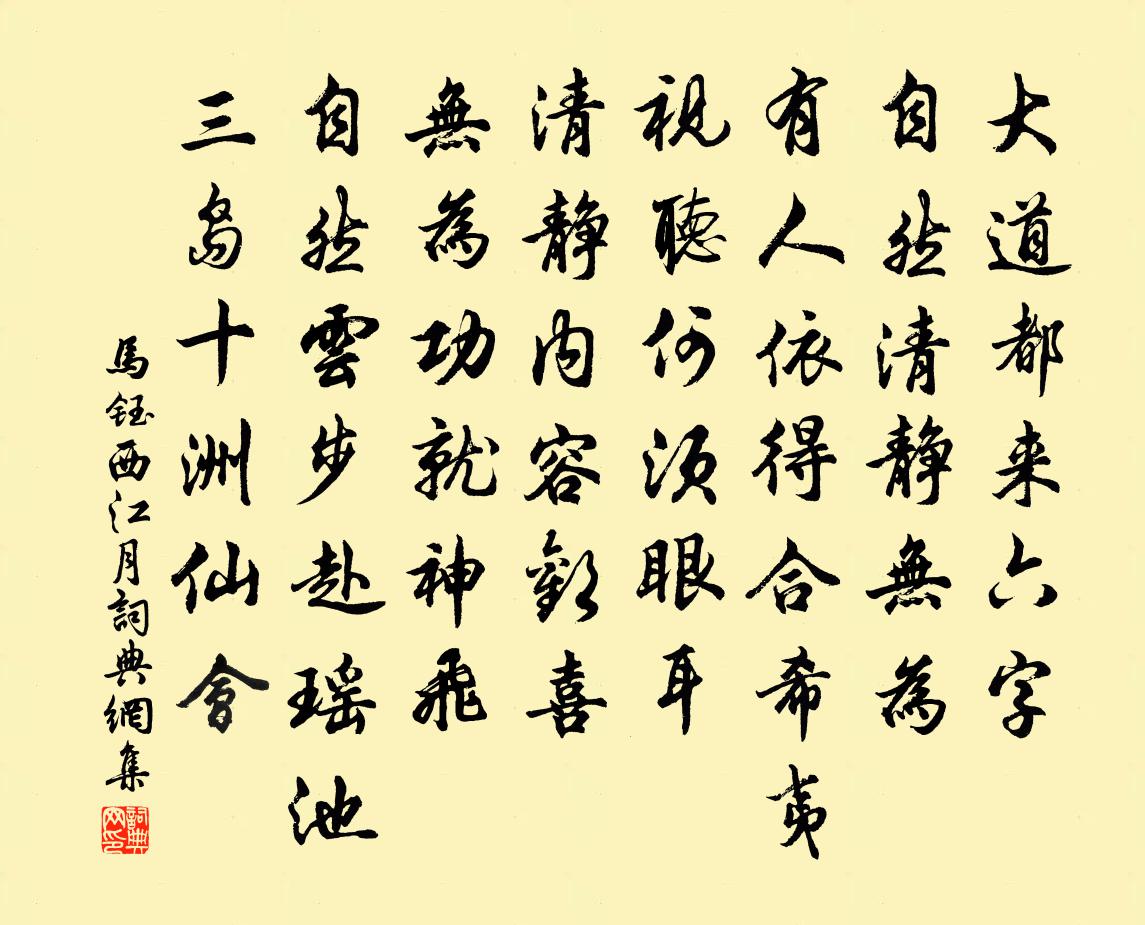 大道都来六字
自然清静無為
有人依得合希夷
視聽何須眼耳
清静内容歡喜
無為功就神飛
自然雲步赴瑶池
三島十洲仙會
馬鈺西江月詞典網集
詞典网印